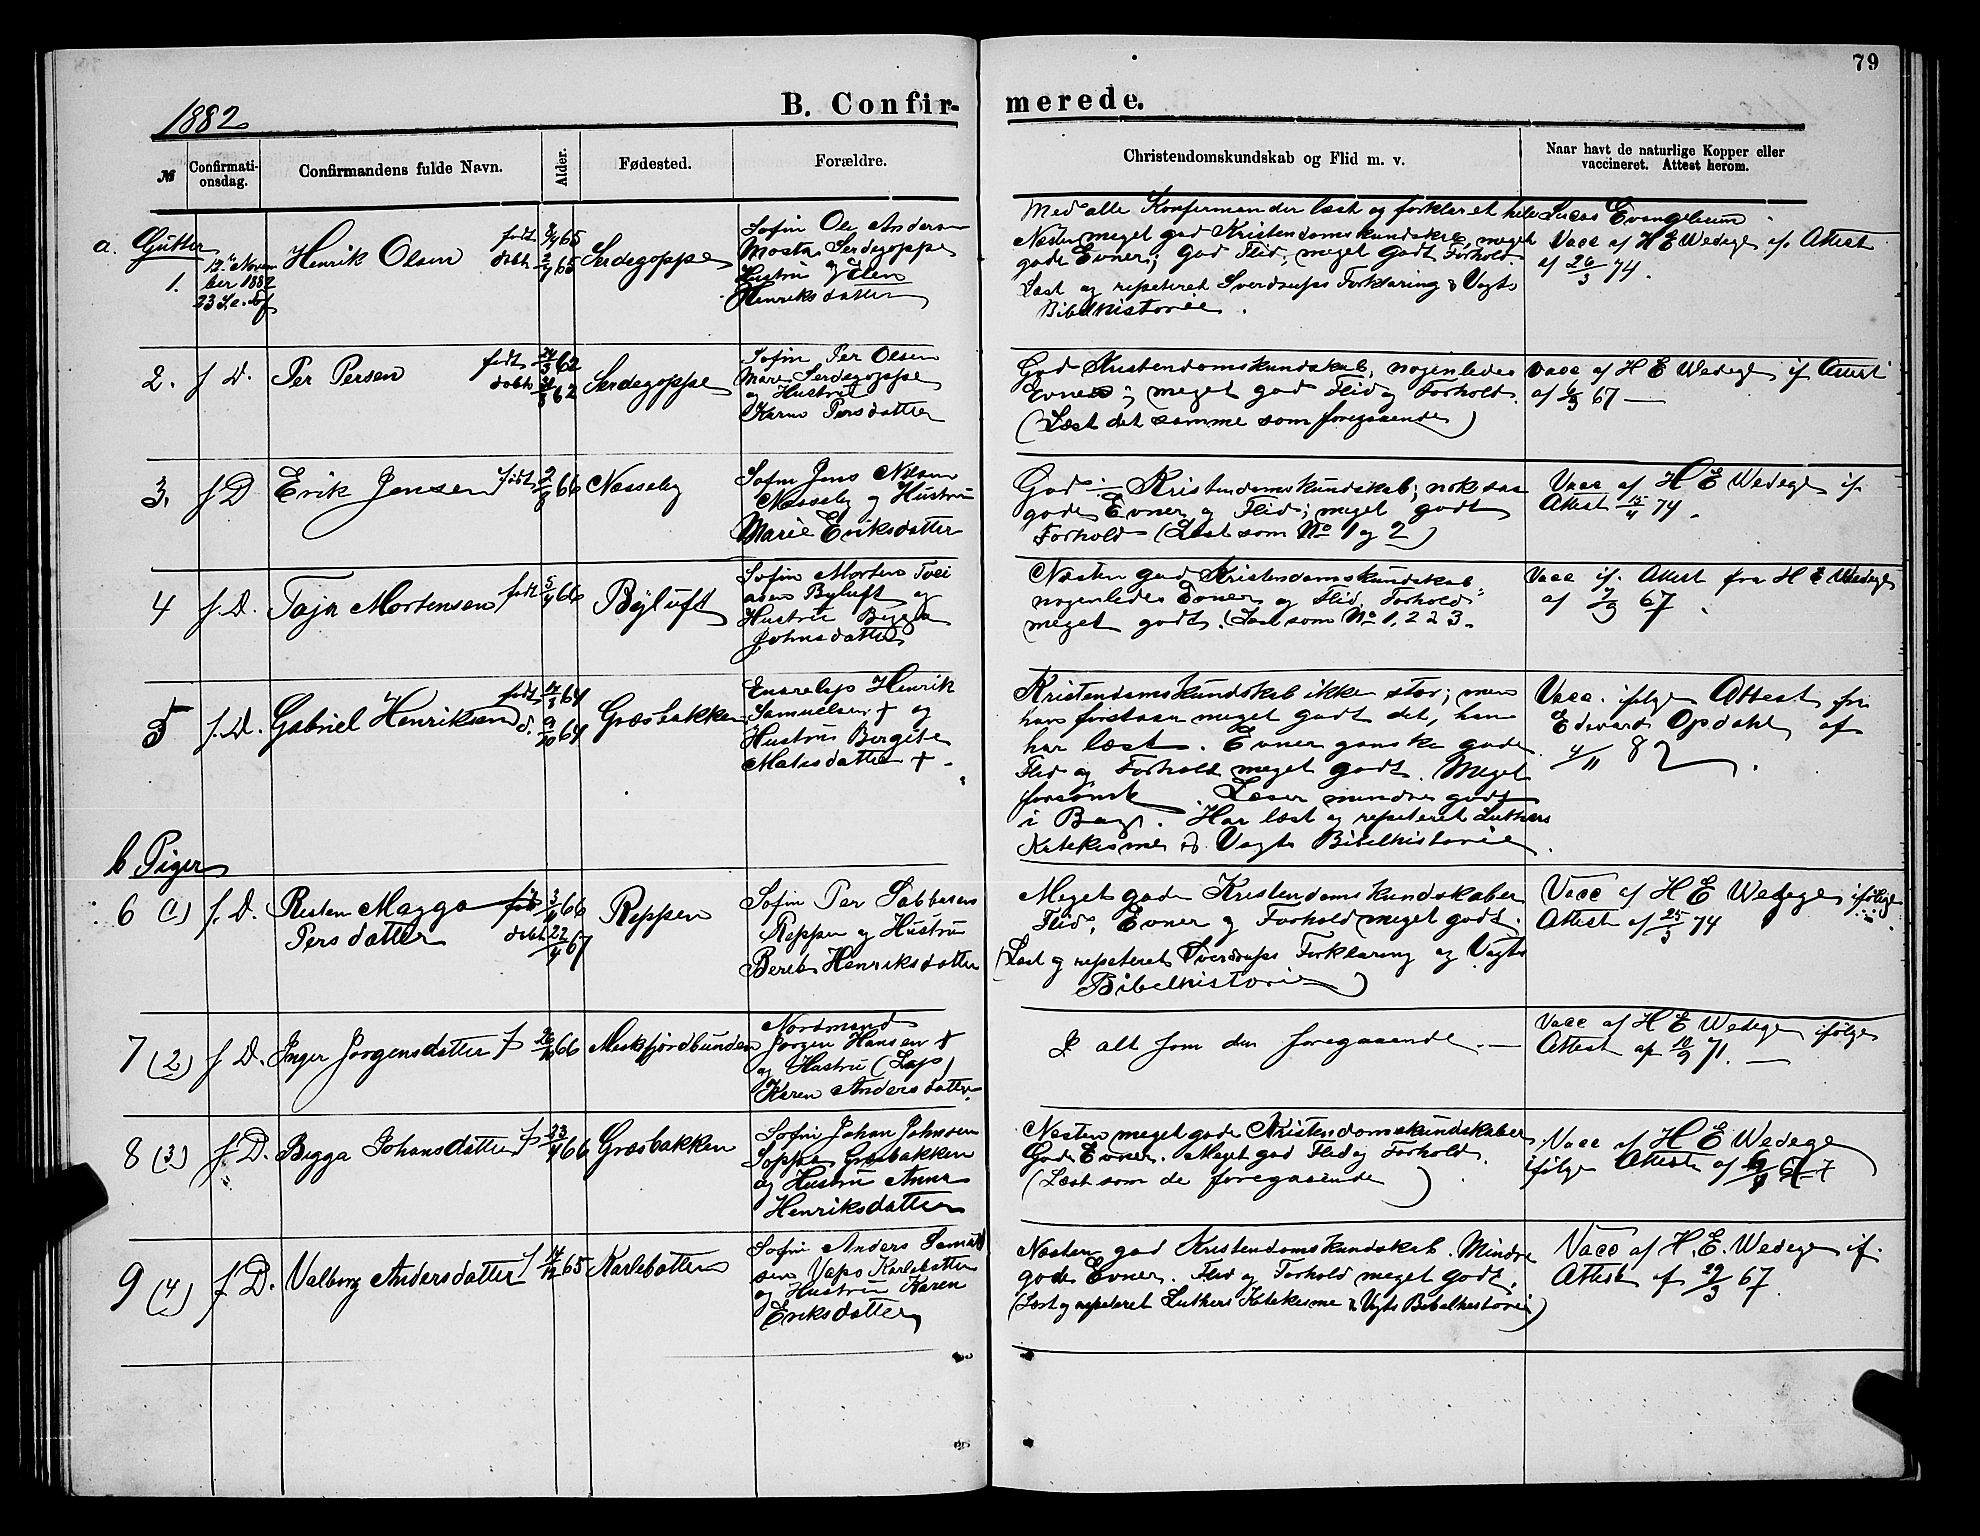 79
1882
B. Confir-
merede.
№ Confirmati-onsdag. Confirmandens fulde Navn. Alder. Fødested. Forældre. Christendomskundskab og Flid m. v. Naar havt de naturlige Kopper eller vaccineret. Attest herom.
a. Gutter
1.
12te Novem
ber 1882
Henrik Olsen
født 65
døbt 65
Serdegoppe
Sofin Ole Anders
Serdegoppe
Hustru og Elen
Henriksdatter
Med alle Konfermander læst og forklaret hele Lucas Evangelium
Næsten meget god Kristendomskundskab, meget
gode Evner; god Flid, meget godt Forhold.
Læst og repeteret Sverdrups Forklaring & Vogts
Bibelhistorie.
Vacc af H E Wedege if. Attest
af 26/3 74.
2. f D. Per Persen
født 62
døbt 62
Serdegoppe
Sofin Per Olsen
Serdegoppe
og Hustru
Karen Persdatter
God Kristendomskundskab, nogenledes
Evner; meget god Flid og Forhold.
(Læst det samme som foregaaende)
Vacc af H E Wedege if Attest
af 6/3 67 —
3. f D Erik Jensen født 66 Nesseby
Sofin Jens Nilsen
Nesseby og Hustru
Marie Eriksdatter
God ÷ Kristendomskundskab; nok saa
gode Evner og Flid; meget godt
Forhold (Læst som No 1 og 2)
Vacc af H E Wedege if.
Attest 15/4 74.
4 f. D. Taja Mortensen født 5/4 66 Byluft
Sofin Morten
Byluft og
Hustru Bigga
Johnsdatter
Næsten god Kristendomskundskab
nogenledes Evner og Flid, Forhold
meget godt. (Læst som No 1, 2 & 3.
Vacc if. Attest fra H E Wedege
af 67.
5 f. D. Gabriel Henriksen
født 64
d. 9/10 64
Græsbakken
Enarelap Henrik
Samuelsen + og
Hustru Bergite
Matisdatter +.
Kristendomskundskab ikke stor; men
han forstaar meget godt det, han
har læst. Evner ganske gode
Flid og Forhold meget godt. Meget
forsømt. Læser mindre godt
i Bog. Har læst og repeteret Luthers
Katekisme og Vogts Bibelhistorie.
Vacc. ifølge Attest fra
Edevard Opdahl af
4/11 82.
b Piger
6 (1) f. D. Resten Magga
Persdatter
født 66
døbt 22/4 67
Reppen
Sofin Per Sabbesen
Reppen og Hustru
Berit Henriksdatter
Meget gode Kristendomskundskaber
Flid, Evner og Forhold meget godt.
(Læst og repeteret Sverdrups Forklaring og Vogts
Bibelhistorie)
Vacc af H E Wedege ifølge
Attest af 25/3 74
7 (2) f D. Inger Jørgensdatter f 66 Meskfjordbunden
Nordmand
Jørgen Hansen +
og Hustru (Lap)
Karen Andersdatter.
I alt som den foregaaende. —
Vacc af H E Wedege ifølge
Attest af 10/9 71. —
8 (3) f. D. Bigga Johansdatter f 23/4 66 Græsbakken
Sofin Johan Johnsen
Soppe Græsbakken
og Hustru Anna
Henriksdatter
Næsten meget gode Kristendomskundskaber
Gode Evner. Meget god Flid og Forhold.
(Læst som de foregaaende)
Vacc af H E Wedege
ifølge Attest af
9 (4) f D. Valborg Andersdatter f 14/12 65 Karlebotten
Sofin Anders
sen Vapo Karlebotten
og Hustru Karen
Eriksdatter
Næsten god Kristendomskundskab. Mindre
gode Evner. Flid og Forhold meget godt.
(Læst og repeteret Luthers Katekisme & Vogts Bibelhistorie)
Vacc af H. E. Wedege if.
Attest af 29/3 67.